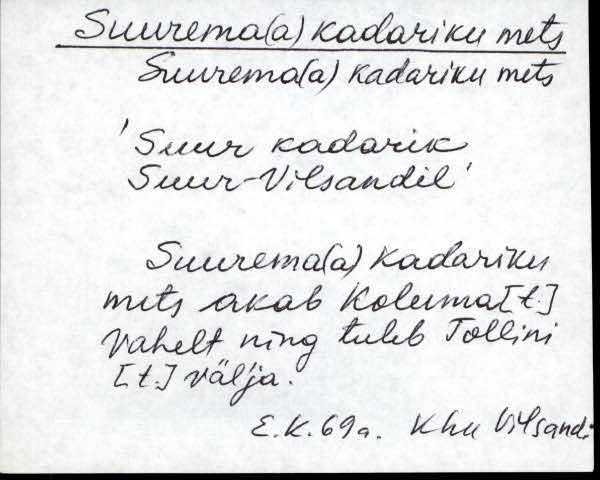 Suurema(a) kadariku mets
Suurema(a) kadariku mets
'Suur kadarik
Suur-Vilsandil'
Suurema(a) kadariku
mets akab Koluma[t.]
vahelt ning tuleb Tollini
[t.] välja.
E.K. 69a. Khu Vilsandi